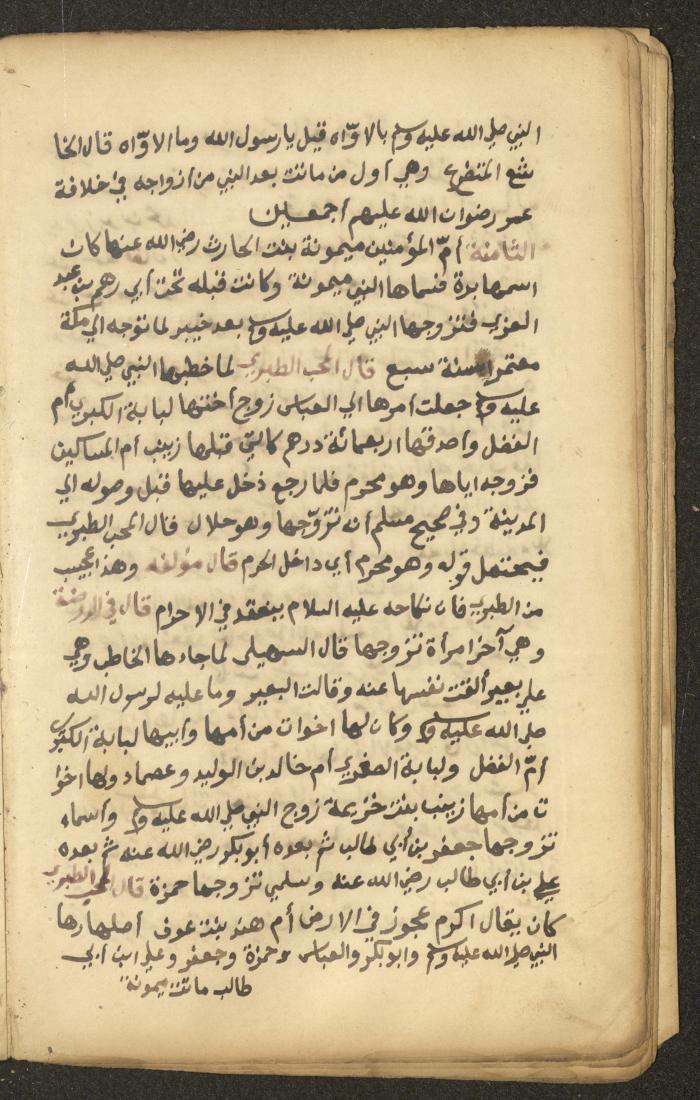 النبي صلى الله عليه وسلم بالاوّاه قيل يا رسول الله وما الاوّاه قال الخا
شع المتضرع وهي أول من ماتت بعد النبي من أزواجه في خلافة
عمر رضوان الله عليهم أجمعين
الثامنة أمّ المؤمنين ميمونة بنت الحارث رضي الله عنها كان
اسمها برة فسماها النبي ميمونة وكانت قبله تحت أبي رهم بن عبد
العزى فتزوجها النبي صلى الله عليه وسلم بعد خيبر لما توجه الي مكة
معتمرا سنة سبع قال المحب الطبري لما خطبها النبي صلى الله
عليه وسلم جعلت أمرها الي العباس زوج أختها لبابة الكبرى أم
الفضل وأصدقها اربعمائة درهم كالتي قبلها زينب أم المساكين
فزوجه اياها وهو محرم فلما رجع دخل عليها قبل وصوله الي
المدينة وفي صحيح مسلم أنه تزوّجها وهو حلال قال المحب الطبري
فيحتمل قوله وهو محرم أي داخل الحرم قال مؤلفه وهذا عجيب
من الطبري فان نكاحه عليه السلام ينعقد في الاحرام قال في الروضة
وهي آخر امرأة تزوجها قال السهيلي لما جاءها الخاطب وهي
علي بعير ألقت نفسها عنه وقالت البعير وما عليه لرسول الله
صلى الله عليه وسلم وكان لها اخوات من أمها وأبيها لبابة الكبرى
أمّ الفضل ولبابة الصغرى أم خالد بن الوليد وعصماء ولها اخوا
ت من أمها زينب بنت خزيمة زوج النبي صلى الله عليه وسلم وأسماء
تزوجها جعفر بن أبي طالب ثم بعده أبو بكر رضي الله عنه ثم بعده
علي بن أبي طالب رضي الله عنه وسلمى تزوجها حمزة قال المحب الطبري
كان يقال اكرم عجوز في الارض أم هند بنت عوف أصهارها
النبي صلى الله عليه وسلم وابو بكر والعباس وحمزة وجعفر وعلي ابن أبي
طالب ماتت ميمونة